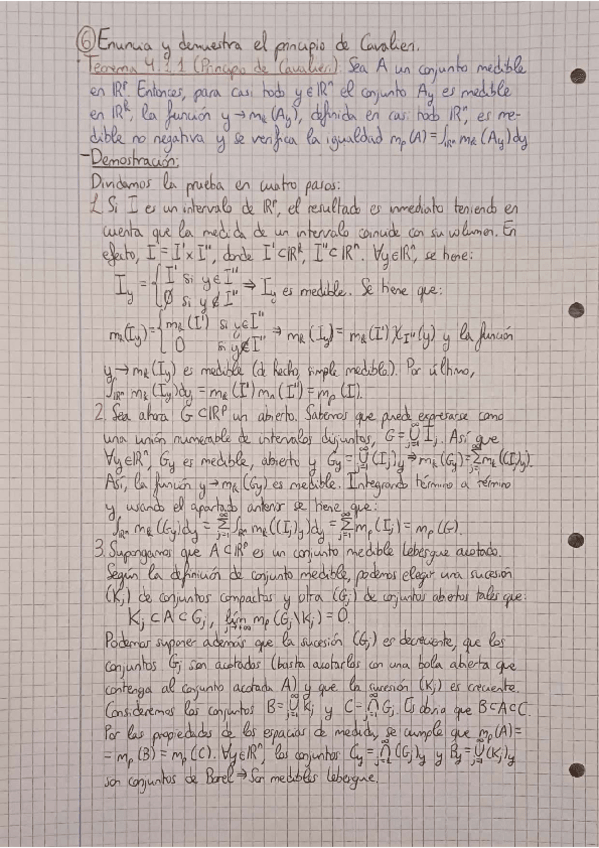 ⑥ Enuncia y demuestra el principio de Cavalieri.
Teorema 4.1.1 (Principio de Cavalieri). Sea A un conjunto medible
en ℝᵖ. Entonces, para casi todo y∈ℝⁿ el conjunto A_y es medible
en ℝᵏ, la función y→m_k(A_y), definida en casi todo ℝⁿ, es me-
dible no negativa y se verifica la igualdad m_p(A)=∫_ℝⁿ m_k(A_y)dy
-Demostración:
Dividamos la prueba en cuatro pasos:
1. Si I es un intervalo de ℝᵖ, el resultado es inmediato teniendo en
cuenta que la medida de un intervalo coincide con su volumen. En
efecto, I=I'×I'', donde I'⊂ℝᵏ, I''⊂ℝⁿ. ∀y∈ℝⁿ, se tiene:
I_y = { I' si y∈I'' ; ∅ si y∉I'' ⇒ I_y es medible. Se tiene que:
m_k(I_y)= { m_k(I') si y∈I'' ; 0 si y∉I'' → m_k(I_y)=m_k(I')χ_I''(y) y la función
y→m_k(I_y) es medible (de hecho, simple medible). Por último,
∫_ℝⁿ m_k(I_y)dy=m_k(I')m_n(I'')=m_p(I).
2. Sea ahora G⊂ℝᵖ un abierto. Sabemos que puede expresarse como
una unión numerable de intervalos disjuntos, G=∪_{j=1}^∞ I_j. Así que
∀y∈ℝⁿ, G_y es medible, abierto y G_y=∪_{j=1}^∞(I_j)_y→m_k(G_y)=Σ_{j=1}^∞ m_k((I_j)_y).
Así, la función y→m_k(G_y) es medible. Integrando término a término
y usando el apartado anterior se tiene que:
∫_ℝⁿ m_k(G_y)dy=Σ_{j=1}^∞∫_ℝⁿ m_k((I_j)_y)dy=Σ_{j=1}^∞ m_p(I_j)=m_p(G).
3. Supongamos que A⊂ℝᵖ es un conjunto medible Lebesgue acotado.
Según la definición de conjunto medible, podemos elegir una sucesión
(K_j) de conjuntos compactos y otra (G_j) de conjuntos abiertos tales que:
K_j⊂A⊂G_j, lim_{j→+∞} m_p(G_j\K_j)=0.
Podemos suponer además que la sucesión (G_j) es decreciente, que los
conjuntos G_j son acotados (basta acotarlos con una bola abierta que
contenga al conjunto acotado A) y que la sucesión (K_j) es creciente.
Consideremos los conjuntos B=∪_{j=1}^∞ K_j y C=∩_{j=1}^∞ G_j. Es obvio que B⊂A⊂C.
Por las propiedades de los espacios de medida, se cumple que m_p(A)=
=m_p(B)=m_p(C). ∀y∈ℝⁿ, los conjuntos C_y=∩_{j=1}^∞(G_j)_y y B_y=∪_{j=1}^∞(K_j)_y
son conjuntos de Borel→Son medibles Lebesgue.